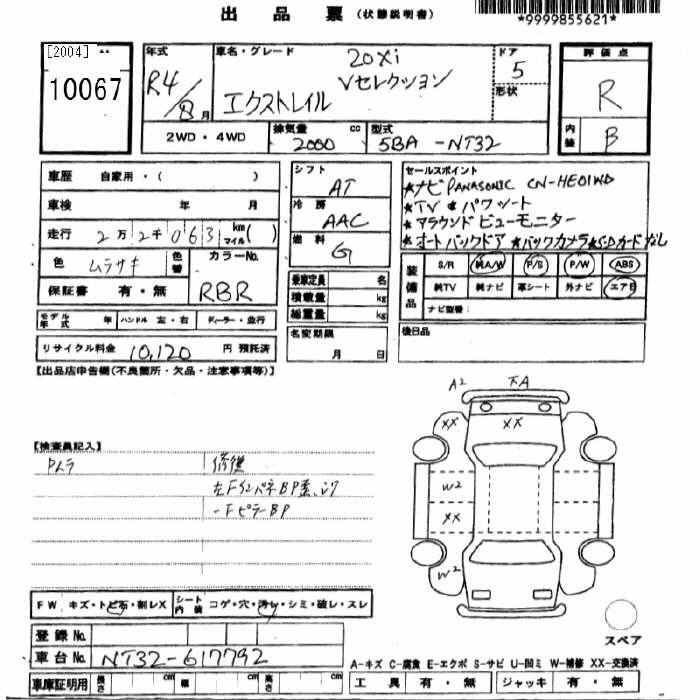 出品票 (状態説明書)
*9999855621*
[2004]
10067
年式 R4/8月
車名・グレード 20xi
Vセレクション
エクストレイル
ドア 5
形状
評価点
R
内装 B
2WD・4WD 排気量 2000 cc 型式 5BA-NT32
車歴 自家用・( )
車検 年 月
走行 2万2千063 km マイル( )
色 ムラサキ 色替 カラーNo. RBR
保証書 有・無
シフト AT
冷房 AAC
燃料 G
乗車定員 名
積載量 kg
総重量 kg
セールスポイント
★ナビPANASONIC CN-HE01WD
★TV ★パワーシート
★アラウンドビューモニター
★オートバックドア ★バックカメラ ★SDカードなし
装備品 S/R 純A/W P/S P/W ABS
純TV 純ナビ 革シート 外ナビ エアB
ナビ型番:
モデル年式 年 ハンドル 左・右 ディーラー・並行
リサイクル料金 10,120 円 預託済
名変期限 月 日
後日品
【出品店申告欄(不良箇所・欠品・注意事項等)】
A2
XX
XX
W2
XX
W2
【検査員記入】
修復
FW キズ・トビ石・割レX シート内装 コゲ・穴・汚レ・シミ・破レ・スレ
登録No.
車台No. NT32-617792
車庫証明用 長さ cm 幅 cm 高さ cm
スペア
A-キズ C-腐食 E-エクボ S-サビ U-凹ミ W-補修 XX-交換済
工具 有・無 ジャッキ 有・無